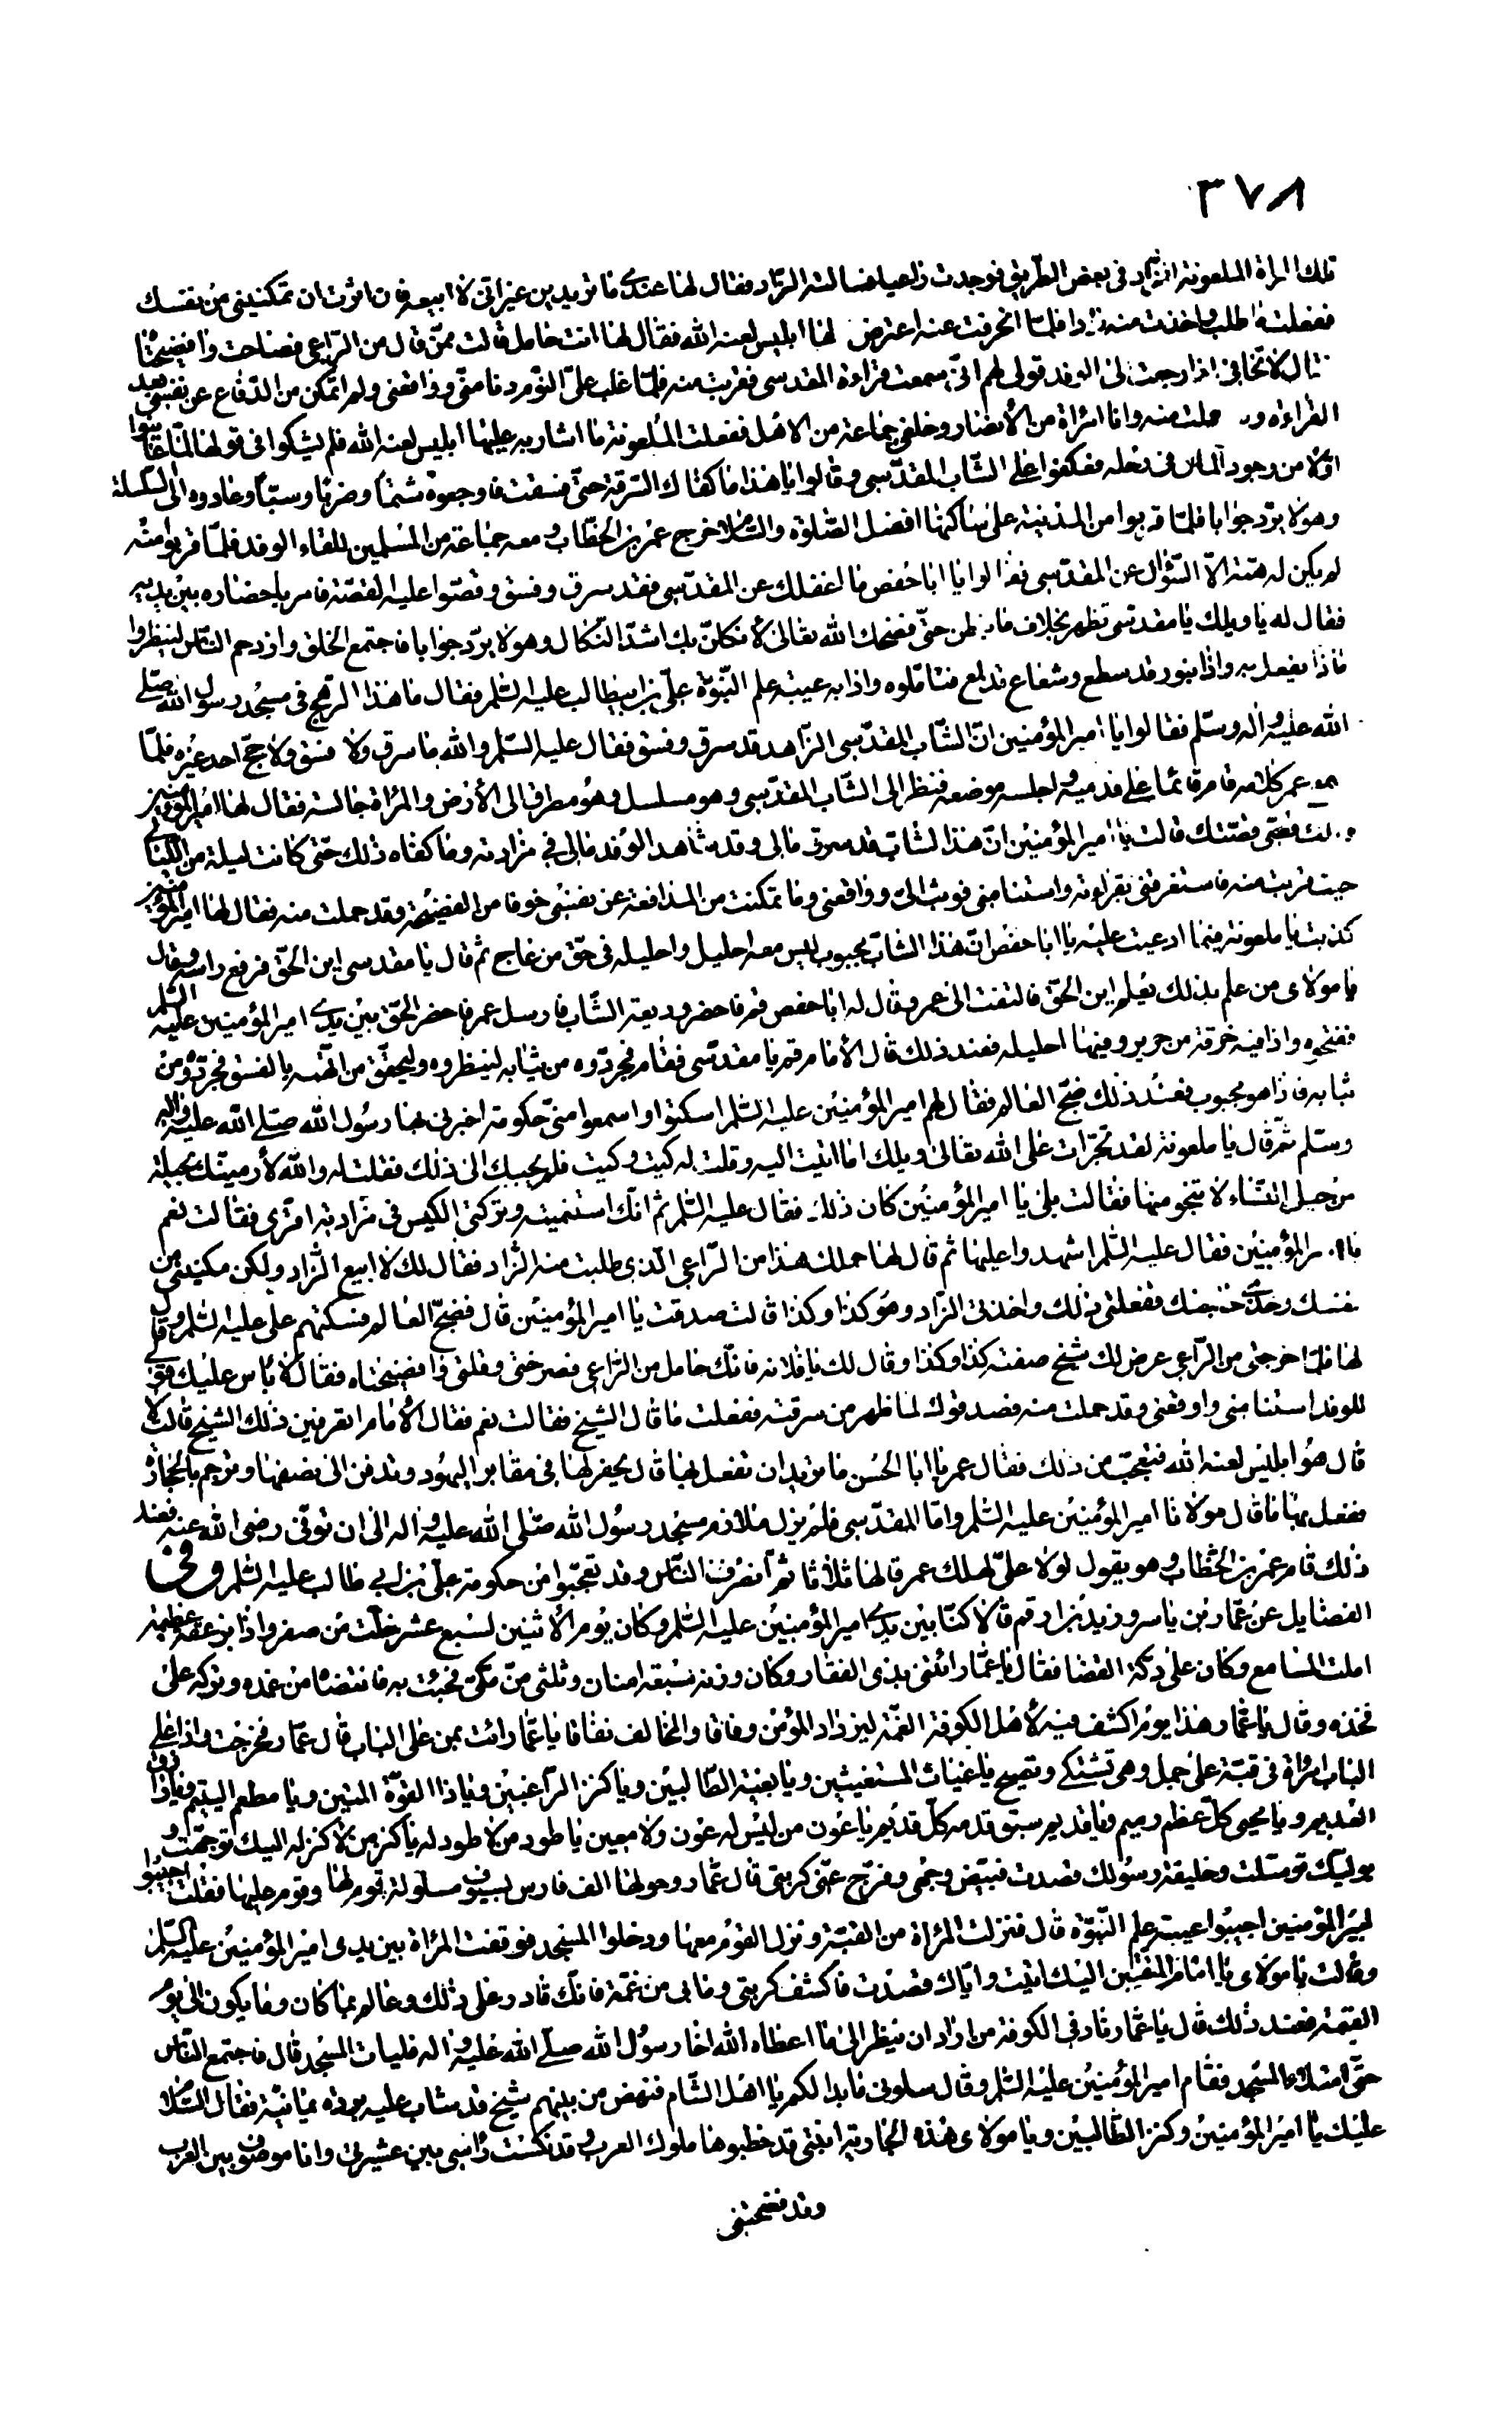 ٣٧٨
تلك المراة الملعونة في بعض الطريق فوجدت راعيا فسالته الزاد فقال لها عندى ما تريدين غير اتى لا ابيعه فان اثرت ان تمكنينى من نفسك
ففعلت ما طلب واخذت منه زادا فلما انحرفت عنه اعترض لها ابليس لعنه الله فقال لها انت حامل قالت ممن قال من الراعى فصاحت وا فضيحتاه
قال لا تخافى اذا رجعت الى الوفد قولى لهم انى سمعت قراءة المقدسى فقربت منه فلما غلب على النوم دنا منى وواقعنى ولم اتمكن من الدفاع عن نفسى بعد
القراءة وقد حملت منه وانا امراة من الأنصار وخلفى جماعة من الاهل ففعلت الملعونة ما اشار به عليها ابليس لعنه الله فلم يشكوا فى قولها لما عاينوا
اولا من وجود المال فى رحله فعكفوا على الشاب المقدسى وقالوا يا هذا ما كفاك السرقة حتى فسقت فاوجعوه شتما وضربا وسبا وعادوه الى السلسلة
وهو لا يرد جوابا فلما قربوا من المدينة على ساكنها افضل الصلوة والسلام خرج عمر بن الخطاب ومعه جماعة من المسلمين للقاء الوفد فلما قربوا منه
لم يكن له همة الا السؤال عن المقدسى فقالوا يا ابا حفص ما اغفلك عن المقدسى فقد سرق وفسق وقصوا عليه القصة فامر باحضاره بين يديه
فقال له يا ويلك يا مقدسى تظهر بخلاف ما تبطن حتى فضحك الله تعالى لأنكلن بك اشد النكال وهو لا يرد جوابا فاجتمع الخلق وازدحم الناس لينظروا
ماذا يفعل به واذا بنور قد سطع وشعاع قد لمع فتاملوه واذا به عيبة علم النبوة على بن ابيطالب عليه السلم فقال ما هذا الرهج فى مسجد رسول الله صلى
الله عليه واله وسلم فقالوا يا امير المؤمنين ان الشاب المقدسى الزاهد قد سرق وفسق فقال عليه السلم والله ما سرق ولا فسق ولا حج احد غيره فلما
سمع عمر كلامه قام قائما على قدميه واجلسه موضعه فنظر الى الشاب المقدسى وهو مسلسل وهو مطرق الى الأرض والمراة جالسة فقال لها امير المؤمنين
ويلك قصى قصتك قالت يا امير المؤمنين ان هذا الشاب قد سرق مالى وقد شاهد الوفد مالى فى مزادته وما كفاه ذلك حتى كانت ليلة من الليالى
حيث قربت منه فاستغرقنى بقراءته واستنامنى فوثب الى وواقعنى وما تمكنت من المدافعة عن نفسى خوفا من الفضيحة وقد حملت منه فقال لها امير المؤمنين
كذبت يا ملعونة فيما ادعيت عليه يا ابا حفص ان هذا الشاب مجبوب ليس معه احليل واحليله فى حق من عاج ثم قال يا مقدسى اين الحق فرفع راسه وقال
يا مولاى من علم بذلك يعلم اين الحق فالتفت الى عمر وقال له يا ابا حفص قم فاحضر وديعة الشاب فارسل عمر فاحضر الحق بين يدى امير المؤمنين عليه السلم
ففتحوه واذا فيه خرقة من حرير وفيها احليله فعند ذلك قال الأمام قم يا مقدسى فقام فجردوه من ثيابه لينظروه وليحقق من اتهمه بالفسق فجردوه من
ثيابه فاذا هو مجبوب فعند ذلك ضج العالم فقال لهم امير المؤمنين عليه السلم اسكتوا واسمعوا منى حكومة اخبرنى بها رسول الله صلى الله عليه واله
وسلم ثم قال يا ملعونة لقد تجرات على الله تعالى ويلك اما اتيت اليه وقلت له كيت وكيت فلم يجبك الى ذلك فقلت له والله لأرمينك بحيلة
من حيل النساء لا تنجو منها فقالت بلى يا امير المؤمنين كان ذلك فقال عليه السلم ثم انك استنمتيه وتركتى الكيس فى مزادته اقرى فقالت نعم
يا امير المؤمنين فقال عليه السلم اشهدوا عليها ثم قال لها حملك هذا من الراعى الذى طلبت منه الزاد فقال لك لا ابيع الزاد ولكن مكنينى من
نفسك وخذى حاجتك ففعلتى ذلك واخذتى الزاد وهو كذا وكذا قالت صدقت يا امير المؤمنين قال فضج العالم فسكتهم على عليه السلم وقال
لها فلما خرجتى من الراعى عرض لك شيخ صفته كذا وكذا وقال لك يا فلانة فانك حامل من الراعى فصرختى وقلتى وا فضيحتاه فقال لا باس عليك قولى
للوفد استنامنى وواقعنى وقد حملت منه فصدقوك لما ظهر من سرقته ففعلت ما قال الشيخ فقالت نعم فقال الأمام اتعرفين ذلك الشيخ قالت لا
قال هو ابليس لعنه الله فتعجب من ذلك فقال عمر يا ابا الحسن ما تريد ان تفعل بها قال يحفر لها فى مقابر اليهود وتدفن الى نصفها وترجم بالحجارة
ففعل بها ما قال مولانا امير المؤمنين عليه السلم واما المقدسى فلم يزل ملازم مسجد رسول الله صلى الله عليه واله الى ان توفى رضى الله عنه فعند
ذلك قام عمر بن الخطاب وهو يقول لولا على لهلك عمر قالها ثلاثا ثم انصرف الناس وقد تعجبوا من حكومة على بن ابى طالب عليه السلم وفى
الفضايل عن عمار بن ياسر وزيد بن ارقم قالا كنا بين يدى امير المؤمنين عليه السلم وكان يوم الأثنين لسبع عشر خلت من صفر واذا بزعقة عظيمة
املت المسامع وكان على دكة القضا فقال يا عمار ائتنى بذى الفقار وكان وزنه سبعة امنان وثلثى من مكى فجئت به فانتضاه من غمده وتركه على
فخذه وقال يا عمار هذا يوم اكشف فيه لأهل الكوفة الغمة ليزداد المؤمن وفاقا والمخالف نفاقا يا عمار ائت بمن على الباب قال عمار فخرجت واذا على
الباب امراة فى قبة على جمل وهى تشتكى وتصيح يا غياث المستغيثين ويا بغية الطالبين ويا كنز الراغبين ويا ذا القوة المتين ويا مطعم اليتيم ويا رازق
العديم ويا محيى كل عظم رميم ويا قديم سبق قدمه كل قديم يا عون من ليس له عون ولا معين يا طود من لا طود له يا كنز من لا كنز له اليك توجهت و
بوليك توسلت وخليفة رسولك قصدت فبيض وجهى وفرج عنى كربتى قال عمار وحولها الف فارس بسيوف مسلولة قوم لها وقوم عليها فقلت اجيبوا
امير المؤمنين اجيبوا عيبة علم النبوة قال فنزلت المراة من القبة ونزل القوم معها ودخلوا المسجد فوقفت المراة بين يدى امير المؤمنين عليه السلم
وقالت يا مولاى يا امام المتقين اليك اتيت واياك قصدت فاكشف كربتى وما بى من غمة فانك قادر على ذلك وعالم بما كان وما يكون الى يوم
القيمة فعند ذلك قال يا عمار ناد فى الكوفة من اراد ان ينظر الى ما اعطاه الله اخا رسول الله صلى الله عليه واله فليات المسجد قال فاجتمع الناس
حتى امتلأ المسجد فقام امير المؤمنين عليه السلم وقال سلونى ما بدا لكم يا اهل الشام فنهض من بينهم شيخ قد شاب عليه بردة يمانية فقال السلام
عليك يا امير المؤمنين وكنز الطالبين ويا مولاى هذه الجارية ابنتى قد خطبوها ملوك العرب وقد نكست راسى بين عشيرتى وانا موصوف بين العرب
وقد فضحتنى